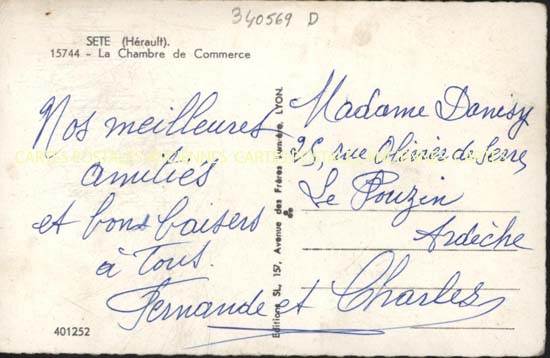 340569 D
SETE (Hérault).
15744 - La Chambre de Commerce
Nos meilleures
amitiés
et bons baisers
à Tous.
Fernande et Charles
401252
Editions SL, 157, Avenue des Frères Lumière, LYON.
Madame Danisy
25, rue Olivier de Serres
Le Pouzin
Ardèche